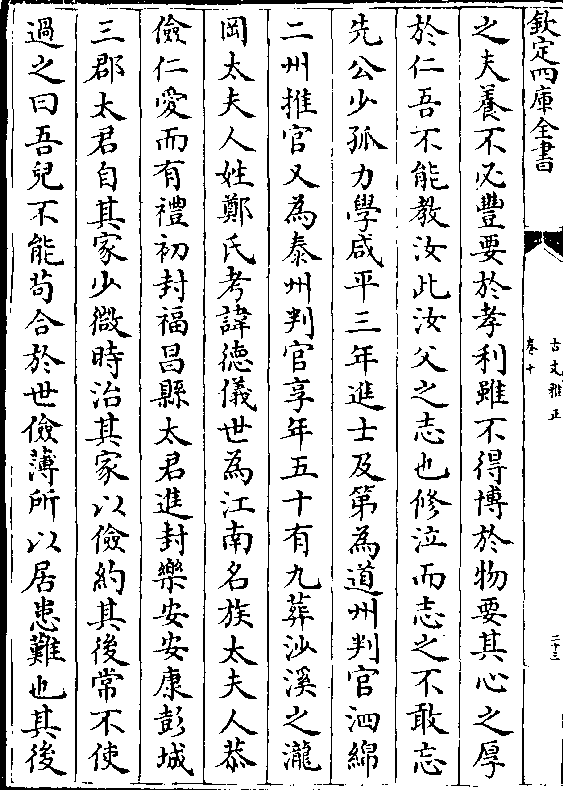 欽定四庫全書
古文雅正
卷十
二十三
之夫養不必豐要於孝利雖不得博於物要其心之厚
於仁吾不能教汝此汝父之志也修泣而志之不敢忘
先公少孤力學咸平三年進士及第為道州判官泗綿
二州推官又為泰州判官享年五十有九葬沙溪之瀧
岡太夫人姓鄭氏考諱德儀世為江南名族太夫人恭
儉仁愛而有禮初封福昌縣太君進封樂安安康彭城
三郡太君自其家少微時治其家以儉約其後常不使
過之曰吾兒不能苟合於世儉薄所以居患難也其後